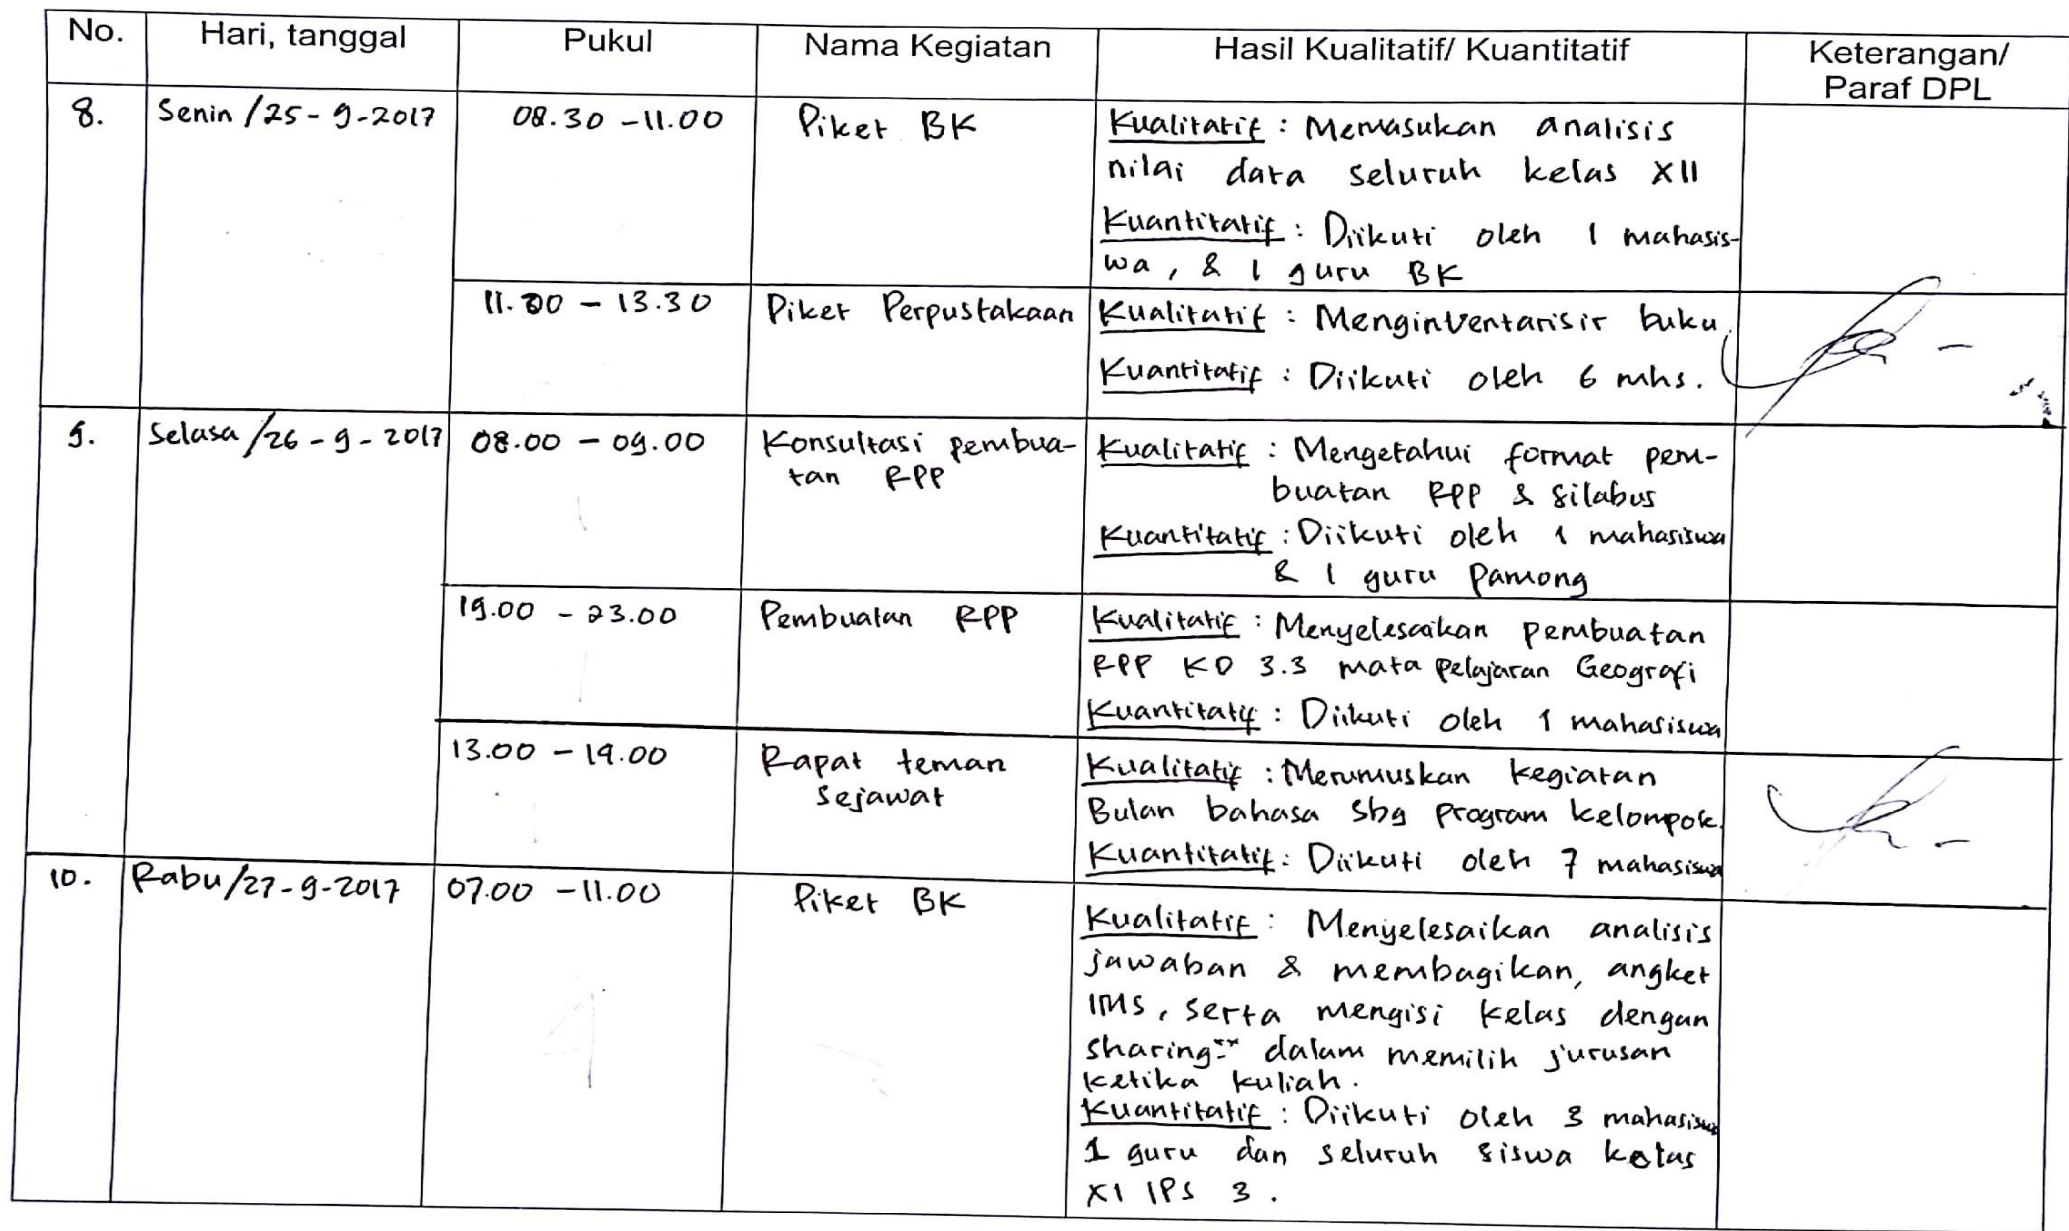 No. Hari, tanggal Pukul Nama Kegiatan Hasil Kualitatif/ Kuantitatif Keterangan/
Paraf DPL
8. Senin /25-9-2017 08.30 -11.00 Piket BK Kualitatif : Memasukan analisis
nilai data seluruh kelas XII
Kuantitatif : Diikuti oleh 1 mahasis-
wa, & 1 guru BK
11.00 - 13.30 Piket Perpustakaan Kualitatif : Menginventarisir buku
Kuantitatif : Diikuti oleh 6 mhs.
9. Selasa /26-9-2017 08.00 - 09.00 Konsultasi pembua-
tan RPP
Kualitatif : Mengetahui format pem-
buatan RPP & silabus
Kuantitatif : Diikuti oleh 1 mahasiswa
& 1 guru Pamong
19.00 - 23.00 Pembuatan RPP Kualitatif : Menyelesaikan pembuatan
RPP KD 3.3 mata pelajaran Geografi
Kuantitatif : Diikuti oleh 1 mahasiswa
13.00 - 19.00 Rapat teman
sejawat
Kualitatif : Merumuskan kegiatan
Bulan bahasa sbg program kelompok.
Kuantitatif : Diikuti oleh 7 mahasiswa
10. Rabu/27-9-2017 07.00 -11.00 Piket BK
Kualitatif : Menyelesaikan analisis
jawaban & membagikan, angket
IMS, serta mengisi kelas dengan
sharing" dalam memilih jurusan
ketika kuliah.
Kuantitatif : Diikuti oleh 3 mahasiswa
1 guru dan seluruh siswa kelas
XI IPS 3.